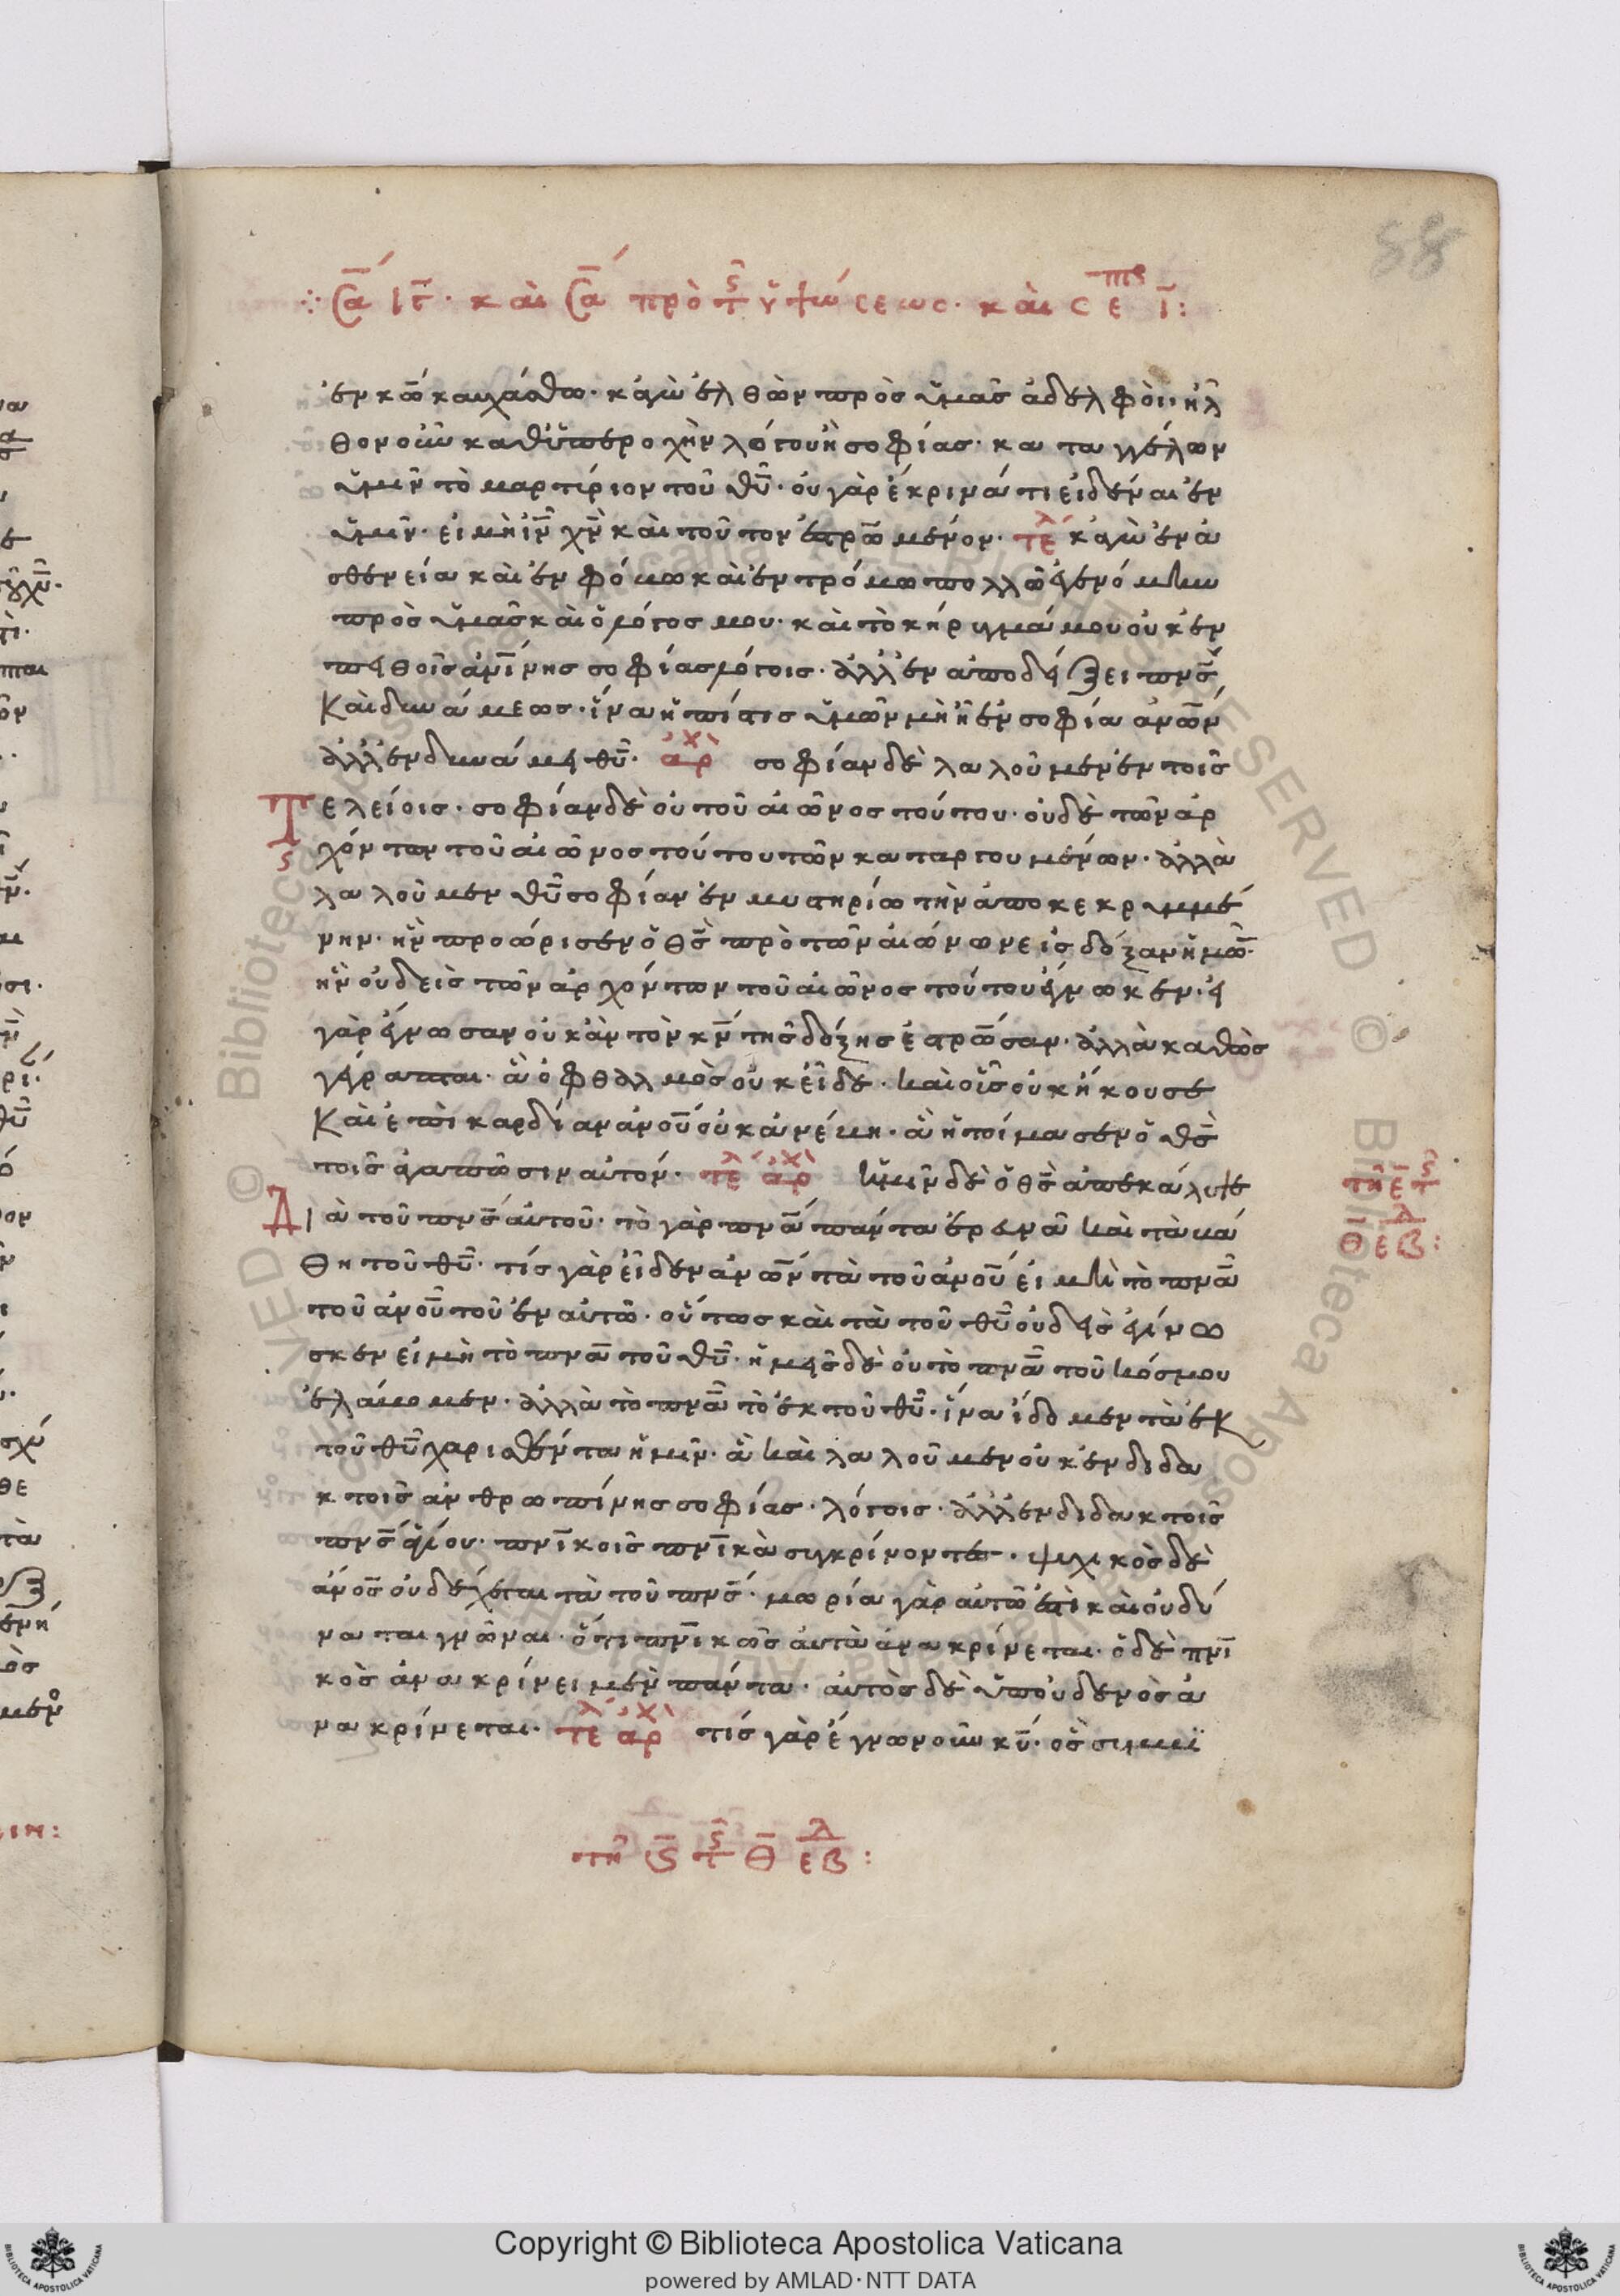 Σα ιγ· καὶ Σα πρὸ τ ὑψώσεως· καὶ σε ι:
ἐν κω καυχάσθω· κἀγὼ ἐλθὼν πρὸς ὑμᾶς ἀδελφοὶ· ἦλ
θον οὐ καθ' ὑπεροχὴν λόγου ἢ σοφίας· καταγγέλων
ὑμῖν τὸ μαρτύριον τοῦ θυ· οὐ γὰρ ἔκρινά τι εἰδέναι ἐν
ὑμῖν· εἰ μὴ ιν χν καὶ τοῦτον ἐστρωμένον· τε κἀγὼ ἐν ἀ
σθενεία καὶ ἐν φόβω καὶ ἐν τρόμω πολλῶ ἐγενόμην
πρὸς ὑμᾶς καὶ ὁ λόγος μου· καὶ τὸ κήρυγμά μου οὐκ ἐν
πειθοῖς ανίνης σοφίας λόγοις· ἀλλ' ἐν ἀποδείξει πνς
καὶ δυνάμεως· ἵνα ἡ πίστις ὑμῶν μὴ ἦ ἐν σοφία ανων
ἀλλ' ἐν δυνάμει θυ· ἀρχ σοφίαν δὲ λαλοῦμεν ἐν τοῖς
τελείοις· σοφίαν δὲ οὐ τοῦ αἰῶνος τούτου· οὐδὲ τῶν ἀρ
χόντων τοῦ αἰῶνος τούτου τῶν καταργουμένων· ἀλλὰ
λαλοῦμεν θυ σοφίαν ἐν μυστηρίω τὴν ἀποκεκρυμμέ
νην· ἣν προώρισεν ὁ θς πρὸ τῶν αἰώνων εἰς δόξαν ἡμῶ·
ἣν οὐδεὶς τῶν ἀρχόντων τοῦ αἰῶνος τούτου ἔγνωκεν· εἰ
γὰρ ἔγνωσαν οὐκ ἂν τὸν κν τῆς δόξης ἐστρωσαν· ἀλλὰ καθὼς
γέγραπται· ἃ ὀφθαλμὸς οὐκ εἶδε· καὶ οὖς οὐκ ἤκουσε
καὶ ἐπὶ καρδίαν ανου οὐκ ἀνέβη· ἃ ἡτοίμασεν ὁ θς
τοῖς ἀγαπῶσιν αὐτόν· τε ἀρχ ἡμῖν δὲ ὁ θς ἀπεκάλυψε
Διὰ τοῦ πνς αὐτοῦ· τὸ γὰρ πνα πάντα ἐρευνᾶ καὶ τὰ βά
θη τοῦ θυ· τίς γὰρ εἶδεν ανων τὰ τοῦ ανου εἰ μὴ τὸ πνα
τοῦ ανου τοῦ ἐν αὐτῶ· οὕτως καὶ τὰ τοῦ θυ οὐδεὶς ἔγνω
σκεν εἰ μὴ τὸ πνα τοῦ θυ· ἡμεῖς δὲ οὐ τὸ πνα τοῦ κόσμου
ἐλάβομεν· ἀλλὰ τὸ πνα τὸ ἐκ τοῦ θυ· ἵνα ἴδομεν τὰ ἐκ
τοῦ θυ χαρισθέντα ἡμῖν· ἃ καὶ λαλοῦμεν οὐκ ἐν διδα
κτοῖς ἀνθρωπίνης σοφίας· λόγοις· ἀλλ' ἐν διδακτοῖς
πνς ἁγίου· πνικοῖς πνικὰ συγκρίνοντες· ψυχικὸς δὲ
ανος οὐ δέχεται τὰ τοῦ πνς· μωρία γὰρ αὐτῶ ἐστὶ καὶ οὐ δύ
ναται γνῶναι· ὅτι πνικῶς αὐτὰ ἀνακρίνεται· ὁ δὲ πνι
κὸς ἀνακρίνει μὲν πάντα· αὐτὸς δὲ ὑπ' οὐδενὸς ἀ
νακρίνεται· τε ἀρχ τίς γὰρ ἔγνω νοῦν κυ· ὃς συμβι
τῆ ε τ
θ εβ:
τῆ ϛ τ θ εβ: